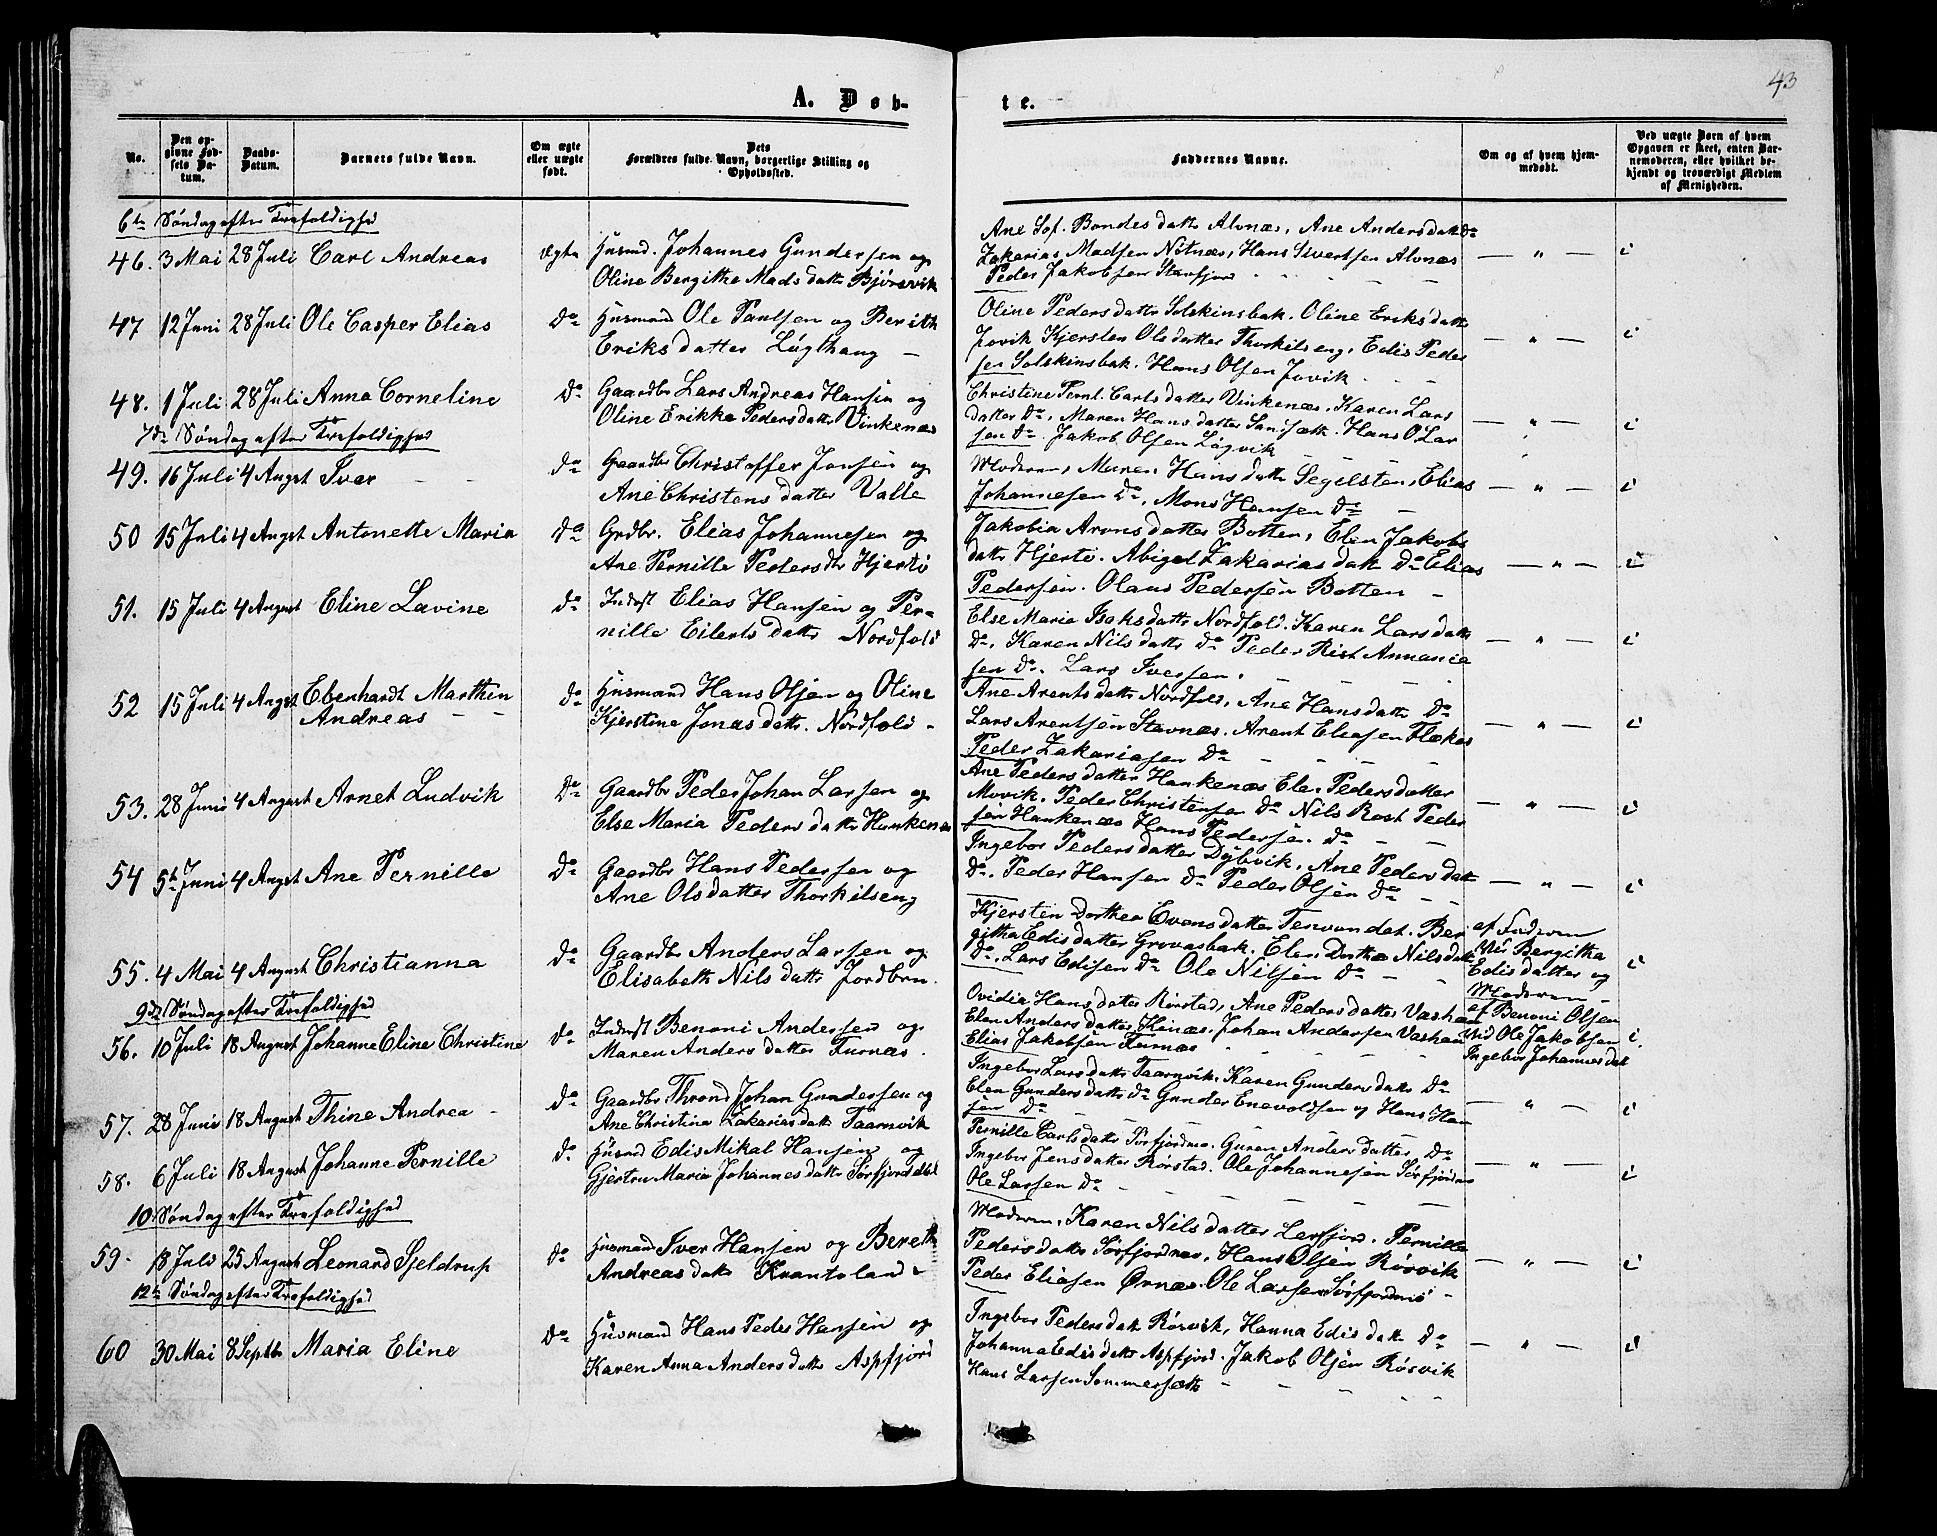 43
A. Døb-
te.
No.
Den op-
givne Fød-
sels Da-
tum.
Daabs-
Datum.
Barnets fulde Navn.
Om ægte
eller uægte
født.
Dets
Forældres fulde Navn, borgerlige Stilling og
Opholdssted.
Faddernes Navne.
Om og af hvem hjem-
medøbt.
Ved uægte Børn af hvem
Opgaven er skeet, enten Bar-
nemoderen, eller hvilket be-
kjendt og troværdigt Medlem
af Menigheden.
6te Søndag efter Trefoldighed
46. 3 Mai 28 Juli Carl Andreas
ægte
Husmd. Johannes Gundersen og
Oline Bergitte Mads datte Bjørsvik
Ane Sof. Bondes datte Alvnæs, Ane Anders datte Do
Zakarias Madsen Nötnæs, Hans Sivertsen Alvnæs
Peder Jakobsen Stavfjord
47 12 Juni 28 Juli Ole Casper Elias
Do
Husmand Ole Paulsen og Berith
Eriks datter Löglhaug
Oline Peders datte Solskinsbak. Oline Eriks datte
Jovik Kjersten Ols datter Thorkilseng, Edis Peder
sen Solskinsbak. Hans Olsen Jovik
48. 1 Juli 28 Juli Anna Corneline
Do
Gaardbr Lars Andreas Hansen og
Oline Erikka Peders datte Vinkenæs
Christine Pernl. Carls datter Vinkenæs. Karen Lars
datter Do, Maren Hans datter Sandsæth. Hans O Lar
sen Do. Jakob Olsen Lögvik
7de Søndag efter Trefoldighed
49. 16 Juli 4 Augst Iver
Do
Gaardbr Christoffer Jonsen og
Ane Christens datter Valle
Moderen, Maren Hans datte Segelsten, Elias
Johannesen Do, Mons Hansen Do
50 15 Juli 4 Augst Antonette Maria
Do
Grdbr. Elias Johannesen og
Ane Pernille Peders dtr Hjertö
Jakobia Arons datter Botten, Elen Jakobs
datte Hjertö. Abigel Zakarias datte Do Elias
Pedersen. Olaus Pedersen Botten
51. 15 Juli 4 August Eline Lavine
Do
Inderst Elias Hansen og Per-
nille Eilerts datte Nordfold
Else Maria Isaks datte Nordfold. Karen Lars datte
Do, Karen Nils datte Do Peder Rist Annania
sen Do. Lars Iversen.
52 15 Juli 4 Augst Ebenhardt Marthin
Andreas
Do
Husmand Hans Olsen og Oline
Kjerstine Jonas datte. Nordfold
Ane Arents datte Nordfold, Ane Hans datte Do
Lars Arentsen Stavnæs. Arent Eliasen Flekes
Peder Zakariasen Do
53. 28 Juni 4 August Arnet Ludvik
Do
Gaardbr Peder Johan Larsen og
Else Maria Peders datte Hunkenæs
Ane Peders datter Hankenæs Elen Peders datter
Movik. Peder Christensen Do Nils Rost Peder
sen Hankenæs Hans Pedersen. Do
54 5te Juni 4 Augst Ane Pernille
Do
Gaardbr Hans Pedersen og
Ane Ols datter Thorkilseng
Ingebor Peders datter Dybvik, Ane Peders datte
Do. Peder Hansen Do Peder Olsen Do
55. 4 Mai 4 August Christianna
Do
Gaardbr Anders Larsen og
Elisabeth Nils datte Jordbru
Kjersten Dorthea Evens datter Tenvandet. Ber
githa Edis datter Grovasbak. Elen Dorthea Nils datte
Do, Lars Edisen Do Ole Nilsen Do
af Faderen
Vid Bergitha
Edis datter og
Moderen
9de Søndag efter Trefoldighed
56. 10 Juli 18 August Johanne Eline Christine
Do
Inderst Benoni Andersen og
Maren Anders datter Furnæs
Ovidia Hans datter Rörstad, Ane Peders datter Vashau
Elen Anders datter Kinæs. Johan Andersen Vashau
Elias Jakobsen Furnæs
af Benoni Olsen
Vid Ole Jakobsen
Ingebor Johannes datte
57. 28 Juni 18 August Thine Andrea
Do
Gaardbr Thrond Johan Gundersen og
Ane Christina Zakarias datte Taarnvik
Ingebor Lars datte Taarnvik. Karen Gunders datte Do
Elen Gunders datte Do Gunder Enevoldsen og Hans Han
sen Do
58. 6 Juli 18 August Johanne Pernille
Do
Husmd Edis Mikal Hansen og
Gjertru Maria Johannes datte Sörfjord
Pernille Carls datte Sörfjordmo. Guren Anders datter Do
Ingebor Jens datter Rörstad. Ole Johannesen Sörfjordmo
Ole Larsen Do
10. Søndag efter Trefoldighed
59. 18 Juli 25 August Leonard Sjeldrup
Do
Husmand Iver Hansen og Bereth
Andreas datte Kvantoland
Moderen, Karen Nils datter Leesfjord. Pernille
Peders datte Sörfjordmo, Hans Olsen Rösvik
Peder Eliasen Ørnæs. Ole Larsen Sörfjordmo
12te Søndag efter Trefoldighed
60 30 Mai 8 Septbr Maria Eline
Do
Husmand Hans Peder Hansen og
Karen Anna Anders datte Aspfjord
Ingebor Peders datte Rösvik, Hanna Edis datte Do
Johanna Edis datte Aspfjord. Jakob Olsen Rösvik
Hans Larsen Sommersæth